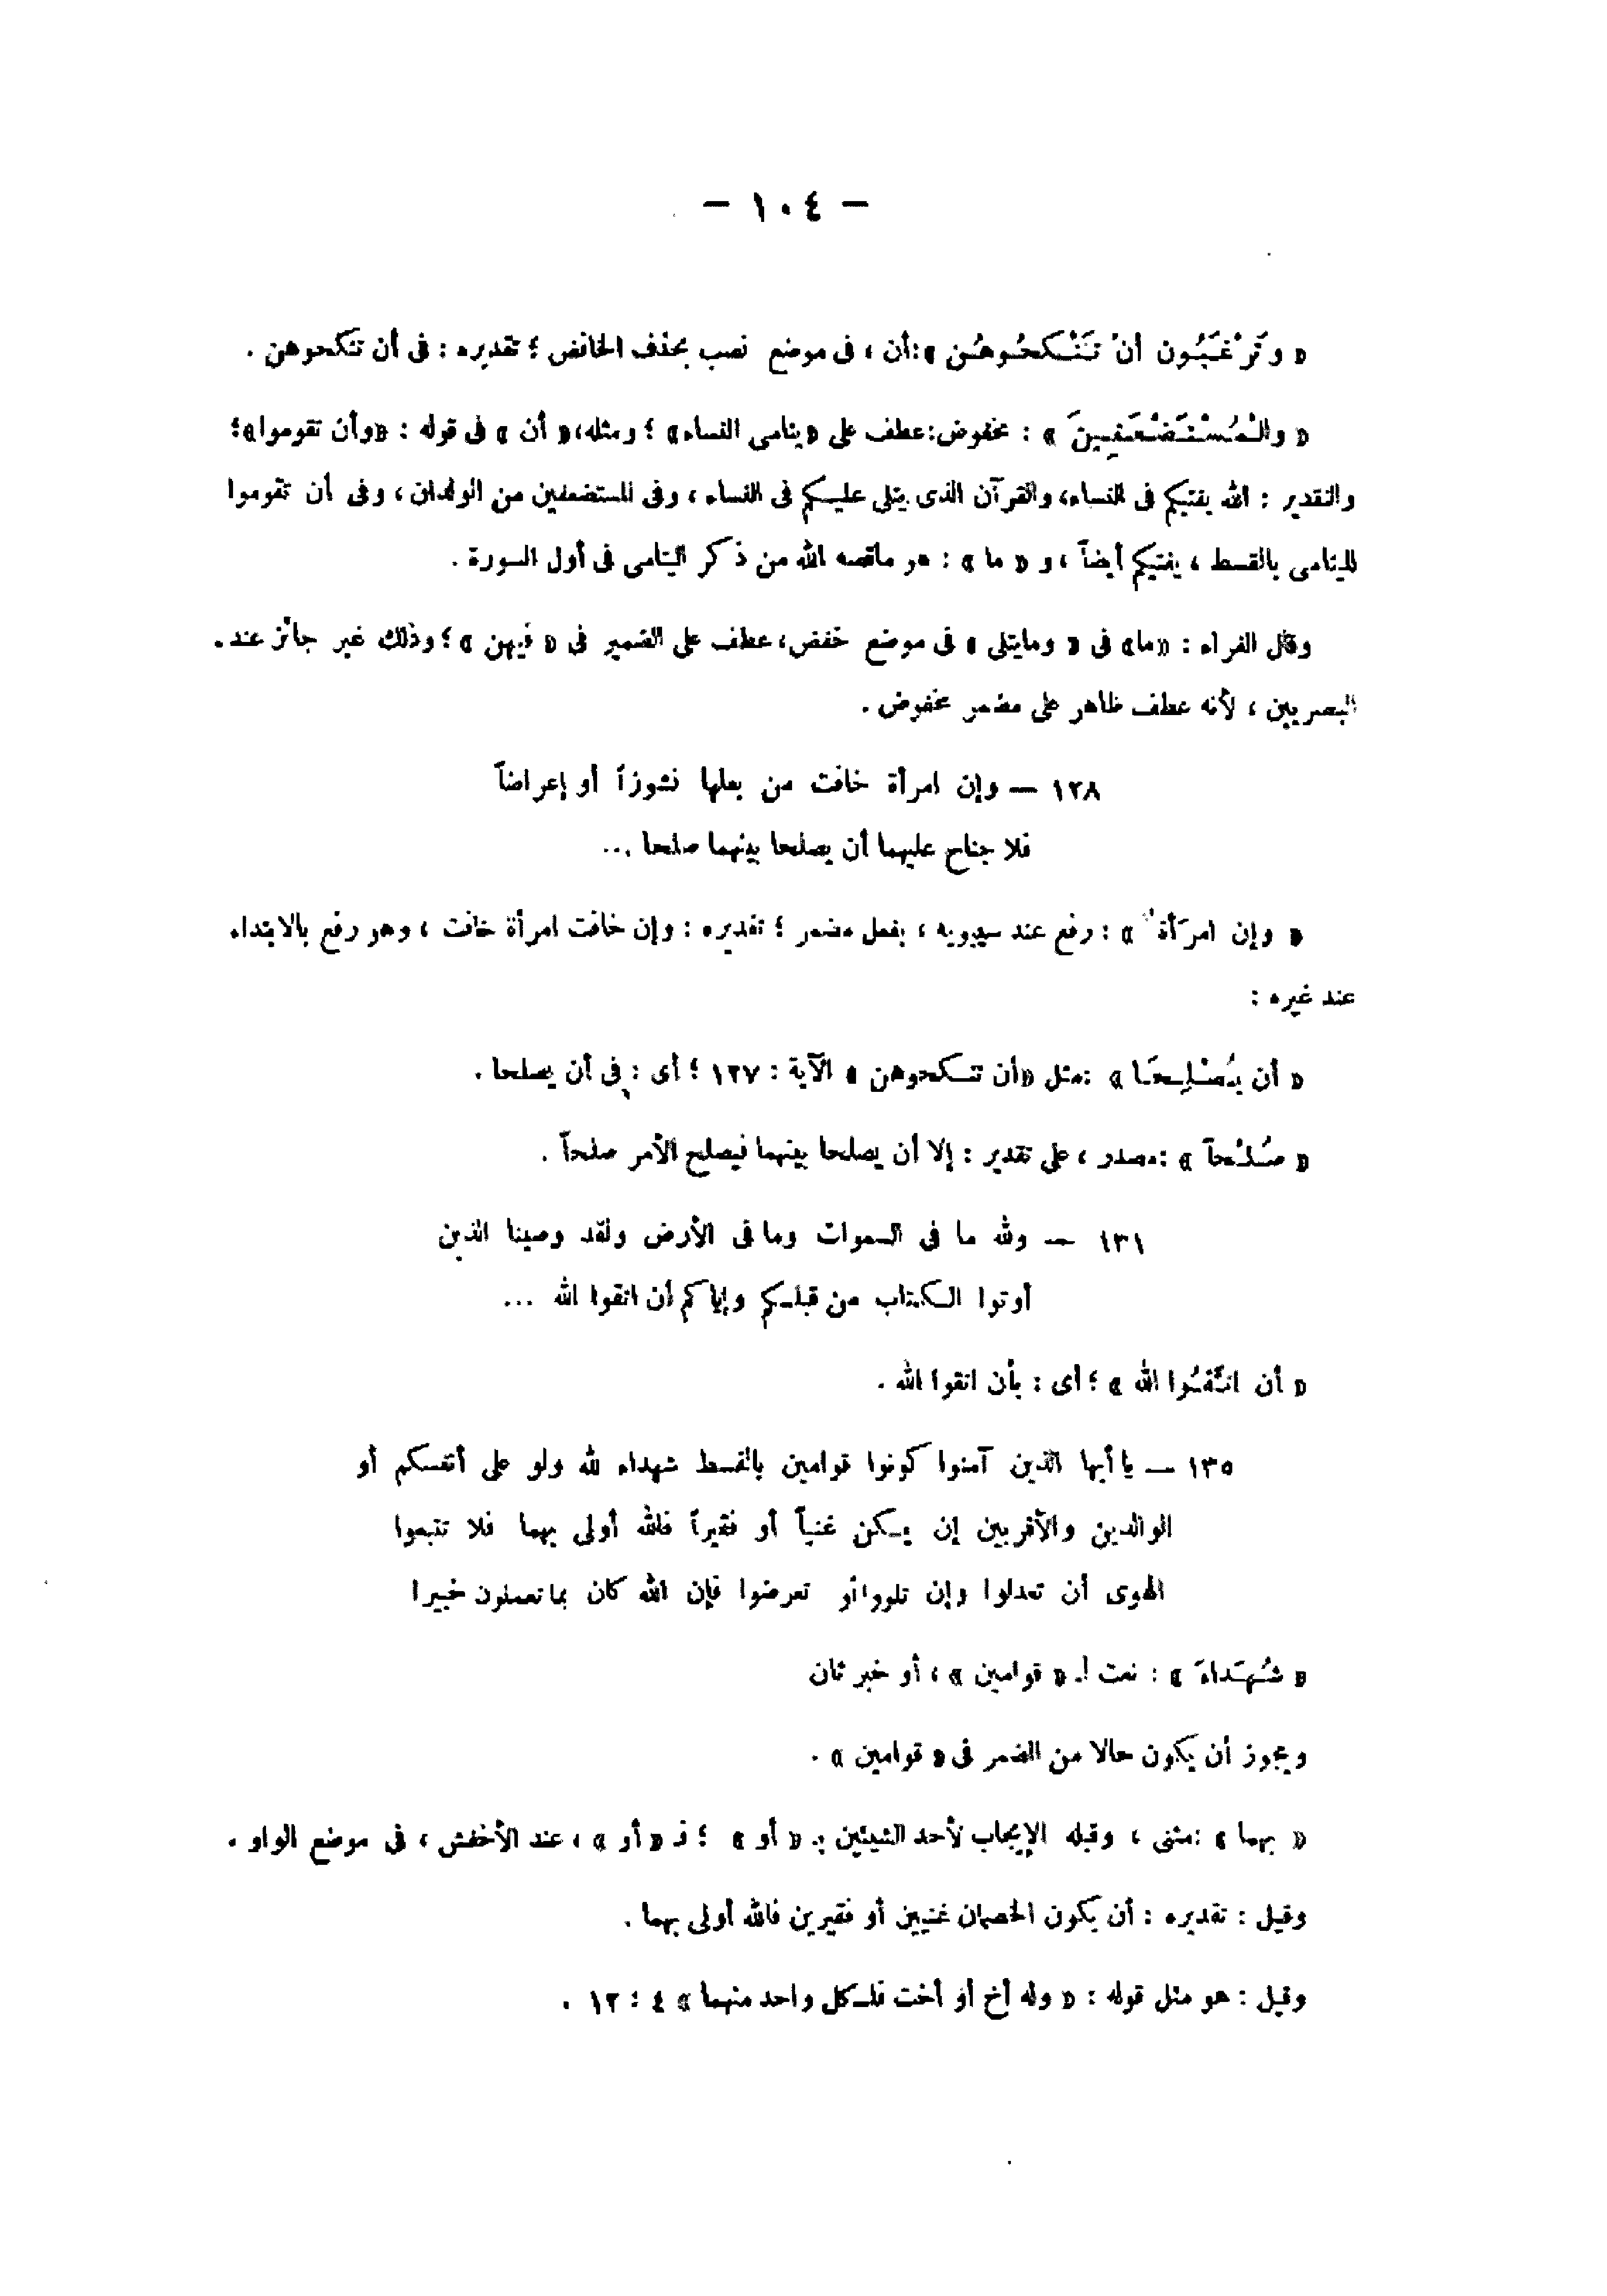 — ١٠٤ —
« وتَرْغَبُون أنْ تَنْكحُوهُن » : أن ، فى موضع نصب بحذف الخافض ؛ تقديره : فى أن تنكحوهن .
« والْمُسْتَضْعَفِينَ » : مخفوض : عطف على « يتامى النساء » ؛ ومثله، « أن » فى قوله : «وأن تقوموا»؛
والتقدير : الله يفتيكم فى النساء، والقرآن الذى يتلى عليكم فى النساء ، وفى المستضعفين من الولدان ، وفى أن تقوموا
لليتامى بالقسط ، يفتيكم أيضاً ، و « ما » : هو ماقصه الله من ذكر اليتامى فى أول السورة .
وقال الفراء : «ما» فى « ومايتلى » فى موضع خفض ، عطف على الضمير فى « فيهن » ؛ وذلك غير جائز عند.
البصريين ، لأنه عطف ظاهر على مضمر مخفوض .
١٢٨ — وإن امرأة خافت من بعلها نشوزاً أو إعراضاً
فلا جناح عليهما أن يصلحا بينهما صلحا ...
« وإن امرَأة » : رفع عند سيبويه ، بفعل مضمر ؛ تقديره : وإن خافت امرأة خافت ، وهو رفع بالابتداء
عند غيره :
« أن يُصْلِحَا » : مثل «أن تنكحوهن » الآية : ١٢٧ ؛ أى : فى أن يصلحا .
« صُلْحاً » : مصدر ، على تقدير : إلا أن يصلحا بينهما فيصلح الأمر صلحاً .
١٣١ — ولله ما فى السموات وما فى الأرض ولقد وصينا الذين
أوتوا الكتاب من قبلكم وإياكم أن اتقوا الله ...
« أن اتَّقُوا الله » ؛ أى : بأن اتقوا الله .
١٣٥ — يا أيها الذين آمنوا كونوا قوامين بالقسط شهداء لله ولو على أنفسكم أو
الوالدين والأقربين إن يكن غنياً أو فقيراً فالله أولى بهما فلا تتبعوا
الهوى أن تعدلوا وإن تلووا أو تعرضوا فإن الله كان بما تعملون خبيرا
« شُهَداءَ » : نعت لـ « قوامين » ، أو خبر ثان
ويجوز أن يكون حالا من الضمر فى « قوامين » .
« بهما » : مثنى ، وقبله الإيجاب لأحد الشيئين بـ « أو » ؛ فـ « أو » ، عند الأخفش ، فى موضع الواو .
وقيل : تقديره : أن يكون الخصمان غنيين أو فقيرين فالله أولى بهما .
وقيل : هو مثل قوله : « وله أخ أو أخت فلكل واحد منهما » ٤ : ١٢ .